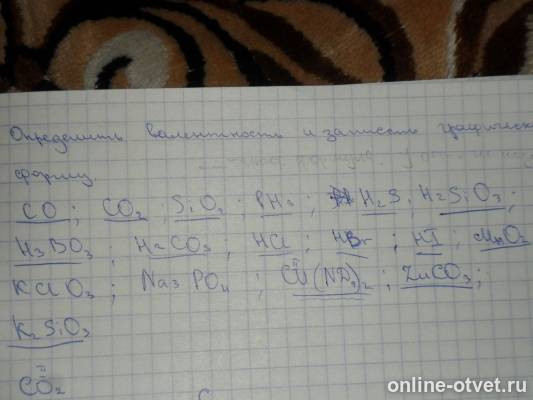 Определить валентность и записать графическ
формулу.
CO ; CO2 ; SiO2 ; PH3 ; H2S ; H2SiO3 ;
H3BO3 ; H2CO3 ; HCl ; HBr ; HI ; MnO2
KClO3 ; Na3PO4 ; Cu(NO3)2 ; ZnCO3 ;
K2SiO3
CO2
online-otvet.ru